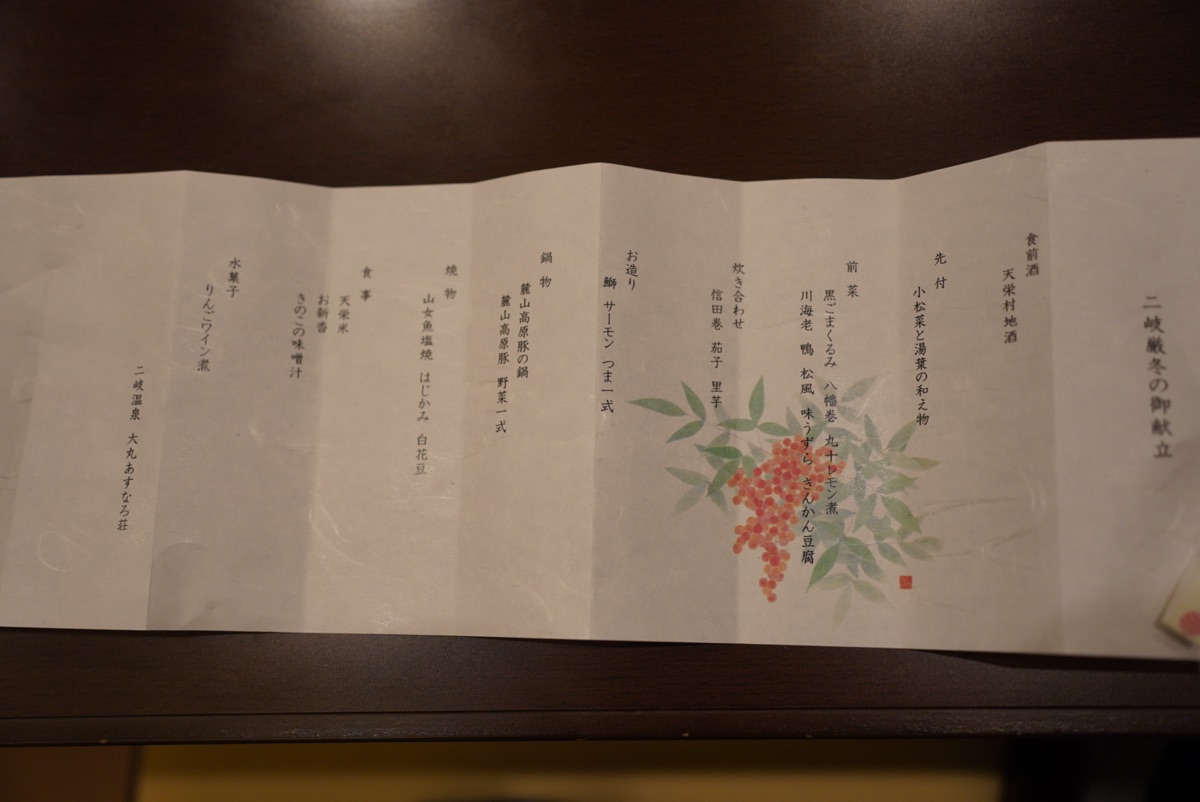 二岐厳冬の御献立
食前酒
天栄村地酒
先付
小松菜と湯葉の和え物
前菜
黒ごまくるみ 八幡巻 丸十レモン煮
川海老 鴨 松風 味うずら きんかん豆腐
炊き合わせ
信田巻 茄子 里芋
お造り
鰤 サーモン つま一式
鍋物
麓山高原豚の鍋
麓山高原豚 野菜一式
焼物
山女魚塩焼 はじかみ 白花豆
食事
天栄米
お新香
きのこの味噌汁
水菓子
りんごワイン煮
二岐温泉 大丸あすなろ荘